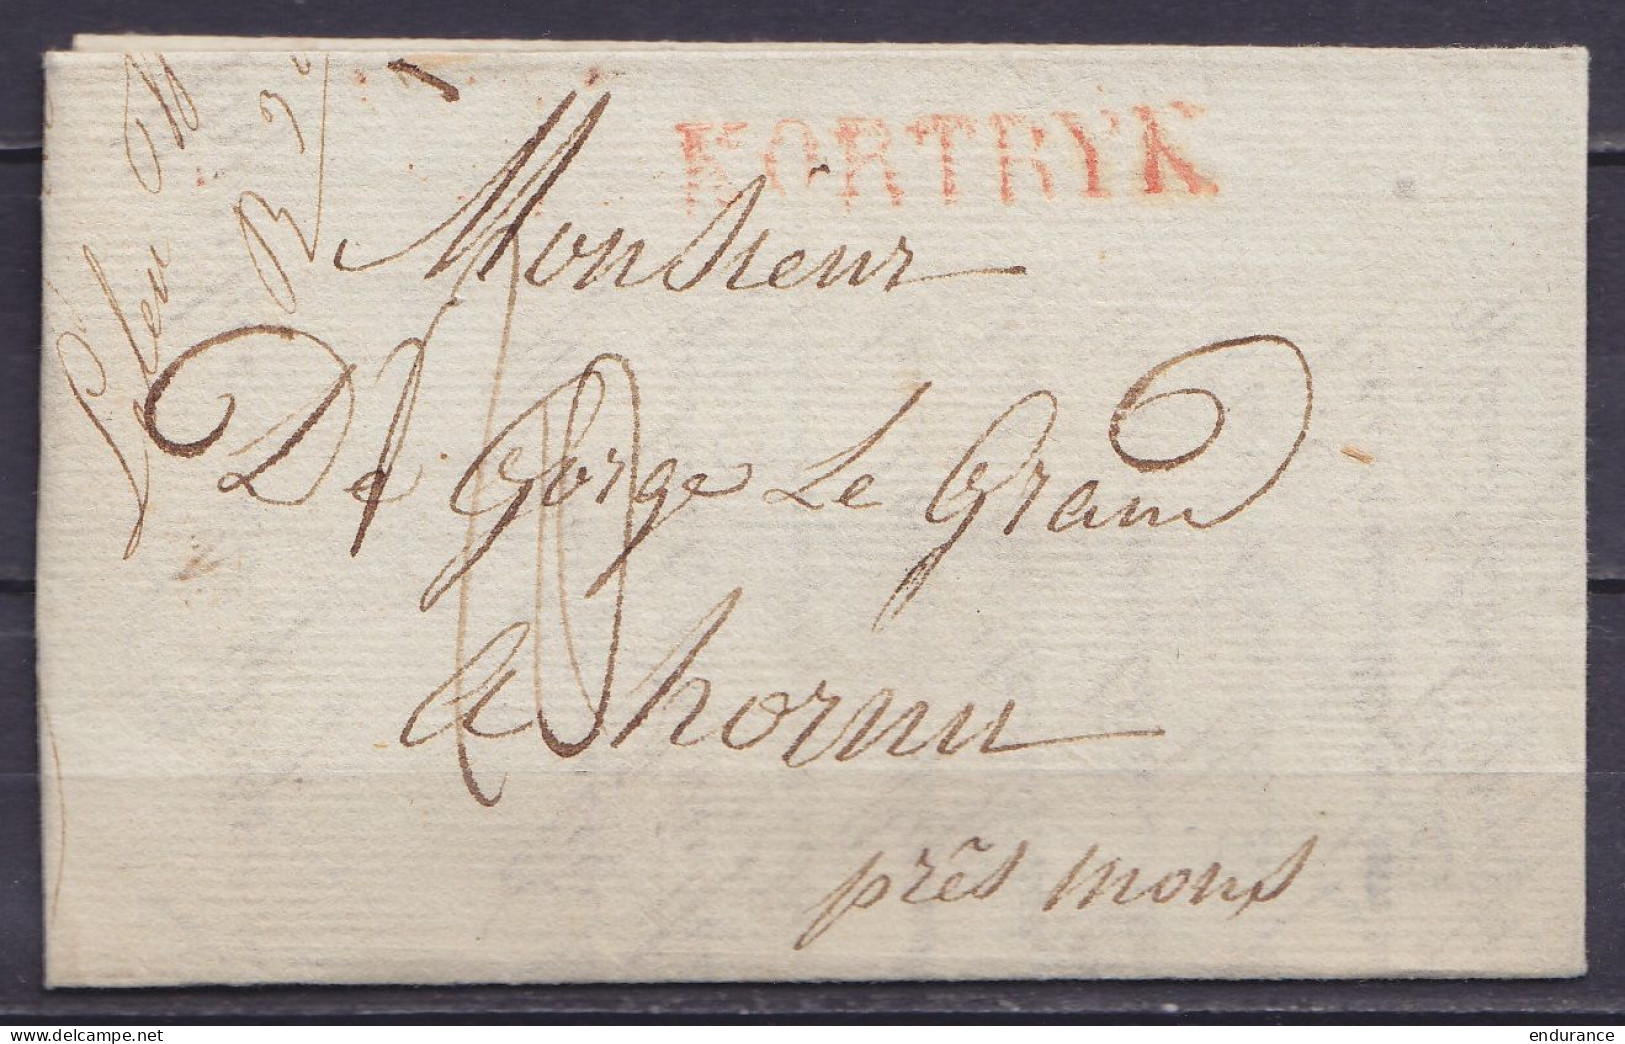 KORTRYK
Monsieur
De Gorge Le Grand
a hornu
près mons
endurance